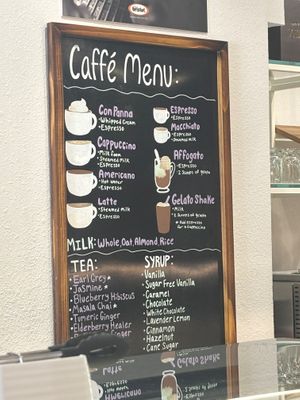 Bristot
Caffé Menu:
Con Panna
•Whipped Cream
•Espresso
Cappuccino
•Milk Foam
•Steamed Milk
•Espresso
Americano
•Hot Water
•Espresso
Latte
•Steamed Milk
•Espresso
Espresso
•Espresso
Macchiato
•Espresso
•Steamed Milk
Affogato
•Espresso
•2 Scoops of gelato
Gelato Shake
•Milk
•2 Scoops of gelato
for a Cappuccino
MILK: Whole, Oat, Almond, Rice
TEA:
•Earl Grey★
•Jasmine★
•Blueberry Hibiscus
•Masala Chai★
•Tumeric Ginger
•Elderberry Healer
SYRUP:
•Vanilla
•Sugar Free Vanilla
•Caramel
•Chocolate
•White Chocolate
•Lavender Lemon
•Cinnamon
•Hazelnut
•Cane Sugar